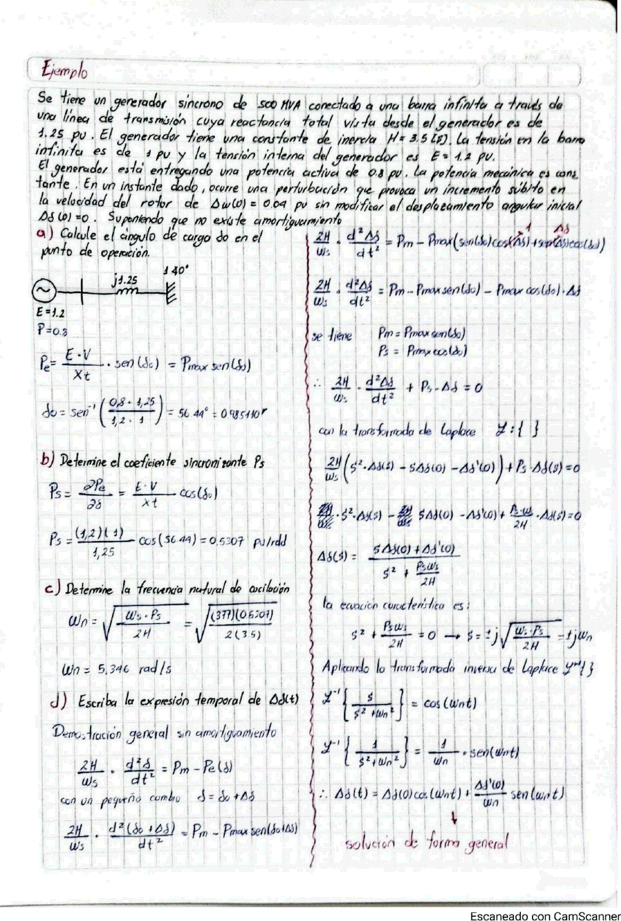 Ejemplo
Se tiene un generador síncrono de 500 MVA conectado a una barra infinita a través de
una línea de transmisión cuya reactancia total vista desde el generador es de
1.25 pu. El generador tiene una constante de inercia H = 3.5 [s]. La tensión en la barra
infinita es de 1 pu y la tensión interna del generador es E = 1.2 pu.
El generador está entregando una potencia activa de 0.8 pu. La potencia mecánica es cons
tante. En un instante dado, ocurre una perturbación que provoca un incremento súbito en
la velocidad del rotor de Δω(0) = 0.04 pu sin modificar el desplazamiento angular inicial
Δδ(0) = 0. Suponiendo que no existe amortiguamiento
a) Calcule el ángulo de carga δo en el
punto de operación.
j1.25
1∠0°
E = 1.2
P = 0.8
Pe = E·V/Xt · sen(δo) = Pmax sen(δo)
δo = sen⁻¹(0,8 · 1,25 / 1,2 · 1) = 56.44° = 0.98511 r
b) Determine el coeficiente sincronizante Ps
Ps = ∂Pe/∂δ = E·V/Xt cos(δo)
Ps = (1,2)(1)/1,25 cos(56.44) = 0,5307 pu/rad
c) Determine la frecuencia natural de oscilación
Wn = √(Ws·Ps/2H) = √((377)(0.5307)/2(3.5))
Wn = 5.346 rad/s
d) Escriba la expresión temporal de Δδ(t)
Demostración general sin amortiguamiento
2H/Ws · d²δ/dt² = Pm - Pe(δ)
con un pequeño cambio δ = δo + Δδ
2H/Ws · d²(δo + Δδ)/dt² = Pm - Pmax sen(δo+Δδ)
1 Δδ
2H/Ws · d²Δδ/dt² = Pm - Pmax(sen(δo)cos(Δδ) + sen(Δδ)cos(δo))
2H/Ws · d²Δδ/dt² = Pm - Pmax sen(δo) - Pmax cos(δo)·Δδ
se tiene Pm = Pmax sen(δo)
Ps = Pmax cos(δo)
∴ 2H/Ws · d²Δδ/dt² + Ps·Δδ = 0
con la transformada de Laplace ℒ:{ }
2H/Ws (s²·Δδ(s) - sΔδ(0) - Δδ'(0)) + Ps·Δδ(s) = 0
s²·Δδ(s) - sΔδ(0) - Δδ'(0) + Ps·Ws/2H · Δδ(s) = 0
Δδ(s) = sΔδ(0) + Δδ'(0) / s² + PsWs/2H
la ecuación característica es:
s² + PsWs/2H = 0 → s = ±j√(Ws·Ps/2H) = ±jωn
Aplicando la transformada inversa de Laplace ℒ⁻¹{ }
ℒ⁻¹{s/s²+Wn²} = cos(Wnt)
ℒ⁻¹{1/s²+Wn²} = 1/Wn · sen(Wnt)
∴ Δδ(t) = Δδ(0)cos(Wnt) + Δδ'(0)/Wn sen(Wnt)
solución de forma general
Escaneado con CamScanner